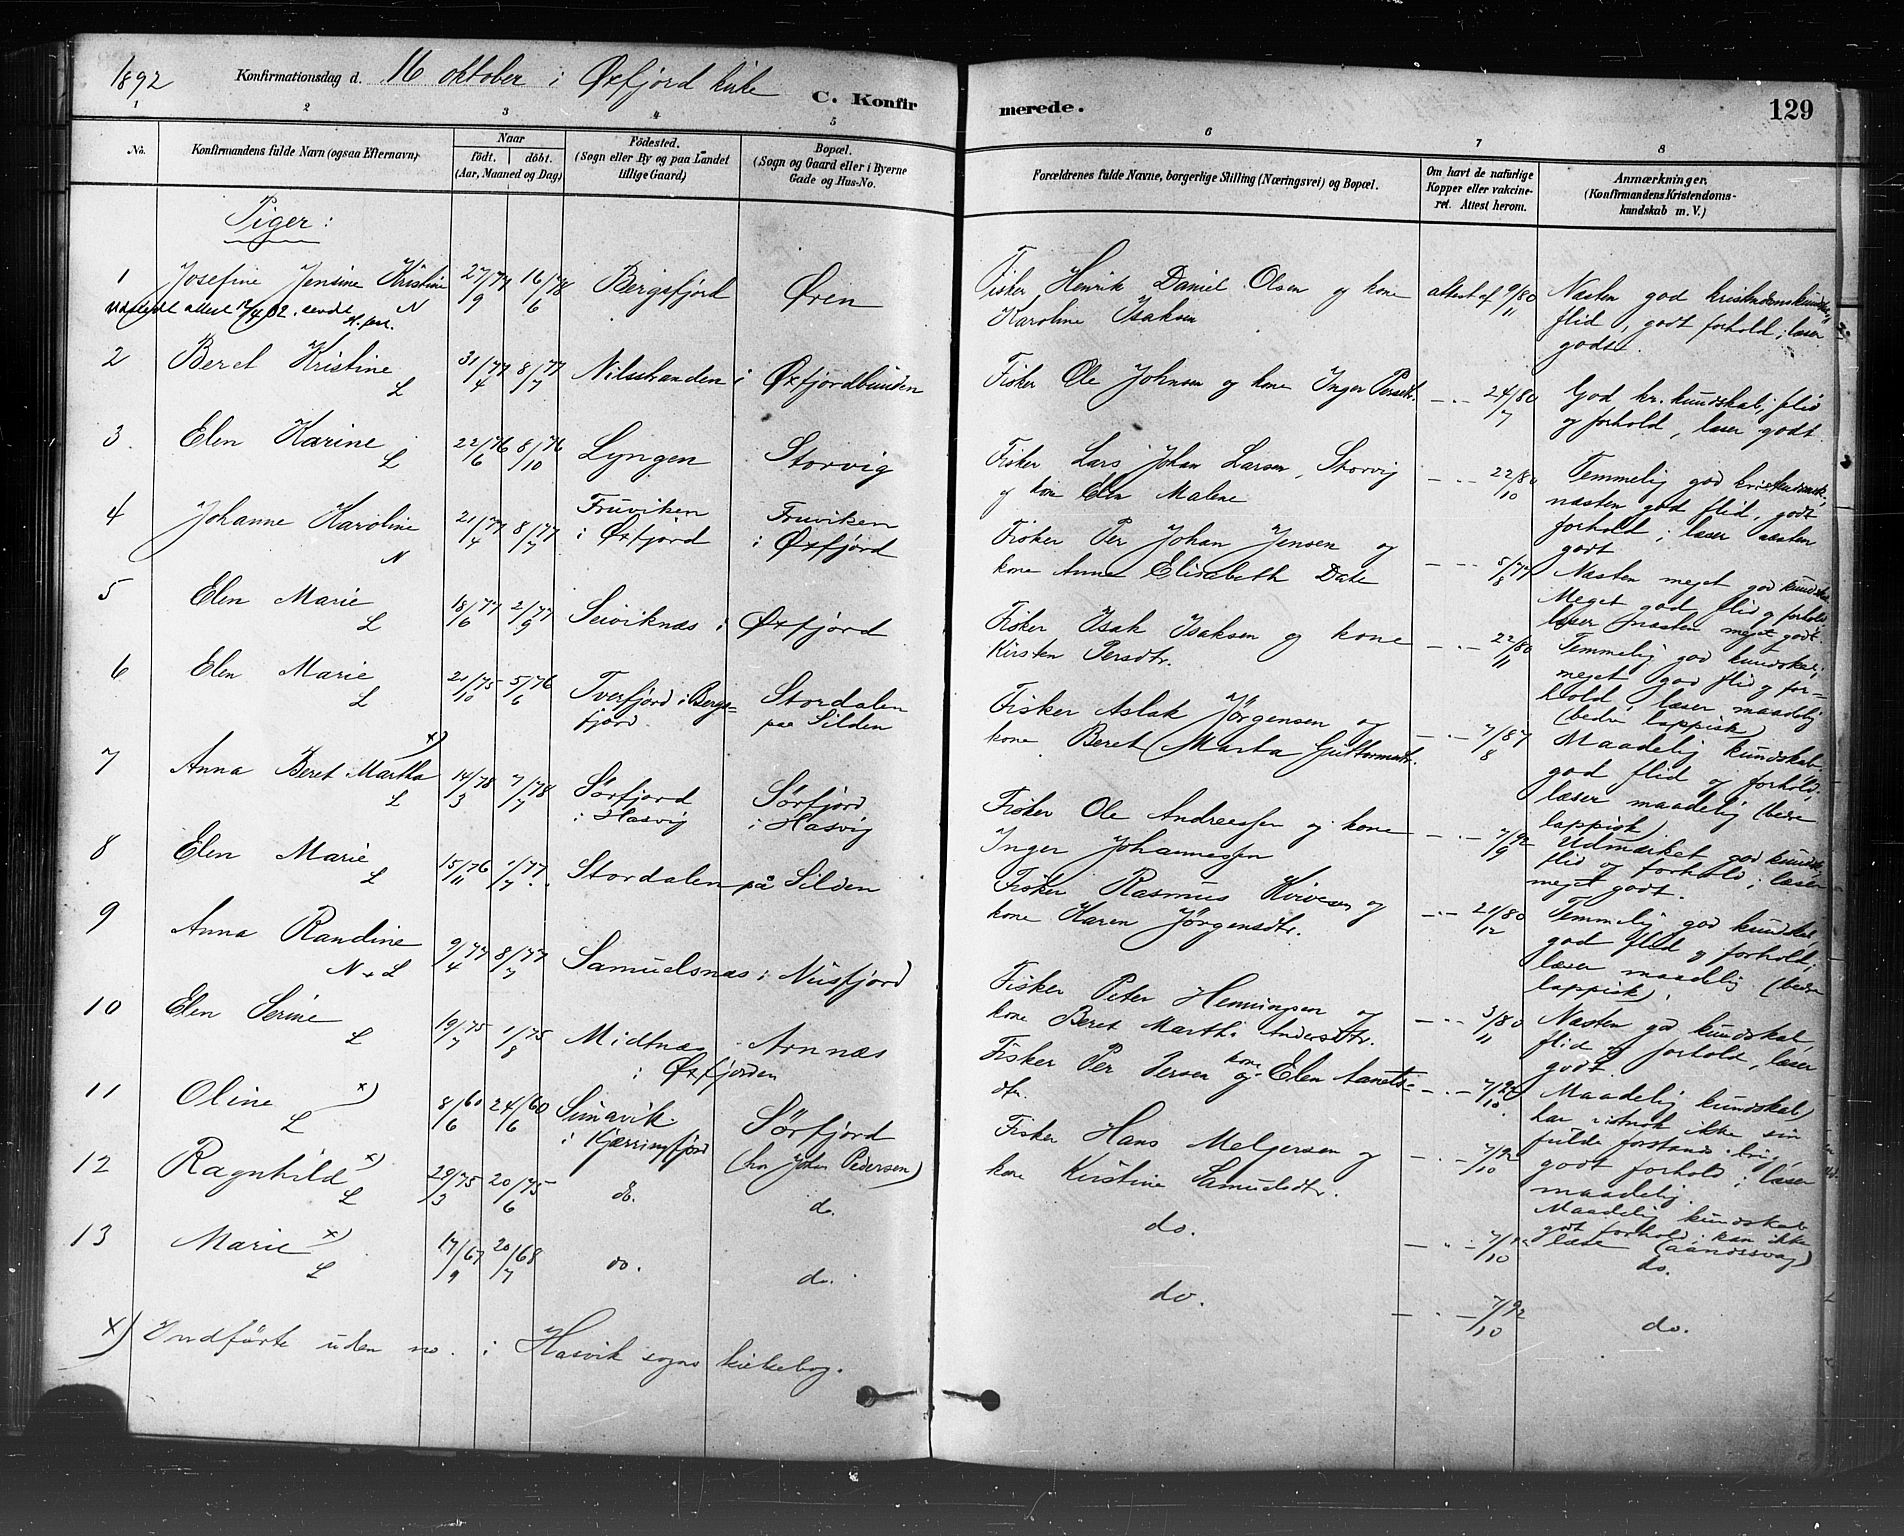 1892 Konfirmationsdag d. 16 oktober i Øxfjord kirke C. Konfirmerede. 129
1 2 3 4 5 6 7 8
No. Konfirmandens fulde Navn (ogsaa Efternavn) Naar födt. döbt. (Aar, Maaned og Dag) Födested. (Sogn eller By og paa Landet tillige Gaard) Bopæl. (Sogn og Gaard eller i Byerne Gade og Hus-No. Forældrenes fulde Navne, borgerlige Stilling (Næringsvei) og Bopæl. Om havt de naturlige Kopper eller vakcineret. Attest herom. Anmærkninger. (Konfirmandens Kristendomskundskab m. V.)
Piger:
1 Josefine Jensine Kristine N 27/9 77 16/6 78 Bergsfjord Øren Fisker Henrik Daniel Olsen og kone Karoline Isaksen attest af 9/11 80 Næsten god kristendomskundsk., flid, godt forhold, læser godt.
attest 17/4 02. sendt
2 Beret Kristine L 31/4 77 8/7 77 Nilsstranden i Øxfjordbunden Fisker Ole Johnsen og kone Inger Persdtr. – " – 24/7 80 God kr. kundskab, flid og forhold, læser godt.
3. Elen Karine L 22/6 76 8/10 76 Lyngen Storvig Fisker Lars Johan Larsen, Storvig og kone Elen Malene – " – 22/10 80 Temmelig god kristendomsk., næsten god flid, godt forhold; læser næsten godt
4 Johanne Karoline N 21/4 77 8/7 77 Fruviken i Øxfjord Fruviken i Øxfjord Fisker Per Johan Jensen og kone Anne Elisabeth Date – " – 5/8 77 Næsten meget god kundskab. Meget god flid og forhold, læser næsten meget godt.
5 Elen Marie L 18/6 77 2/9 77 Seiviknæs i Øxfjord Fisker Isak Isaksen og kone Kirsten Persdtr. – " – 22/11 80 Temmelig god kundskab; meget god flid og forhold, læser maadelig (bedre lappisk)
6 Elen Marie L 21/10 75 5/6 76 Tverfjord i Bergsfjord. Stordalen paa Silden Fisker Aslak Jørgensen og kone Beret Marta Guttormsdtr. – " – 7/8 87 Maadelig kundskab, god flid og forhold; læser maadelig (bedre lappisk)
7 Anna Beret Martha x) L 14/3 78 7/7 78 Sørfjord i Hasvig Sørfjord i Hasvig Fisker Ole Andreassen og kone Inger Johannessen – " – 7/9 92 Udmærket god kundsk., flid og forhold; læser meget godt.
8 Elen Marie L 15/11 76 1/7 77. Stordalen på Silden Fisker Rasmus Kvivesen og kone Karen Jørgensdtr. – " – 21/12 80 Temmelig god kundskab, god flid og forhold; læser maadelig (bedre lappisk).
9 Anna Randine N + L 9/4 77 8/7 77 Samuelsnæs i Nusfjord Fisker Peter Henningsen og kone Beret Marth. Andersdtr. – " – 3/11 80 Næsten god kundskab, flid og forhold, læser godt.
10 Elen Serine L 19/7 75 1/8 75 Midtnæs – Arnnæs i Øxfjorden Fisker Per Persen og kone Elen Anetsdtr. – " – 7/10 92 Maadelig kundskab, har vistnok ikke sin fulde forstands brug, godt forhold; læser maadelig.
11 Oline x) L 8/6 60 24/6 60 Simavik i Kjærringfjord Sørfjord (hos John Pedersen) Fisker Hans Melgersen og kone Kirstine Samuelsdtr. – " – 7/10 92 Maadelig kundskab godt forhold; kan ikke læse (aandssvag)
12 Ragnhild x) L 29/3 75 20/6 75 do. do. do. – " – 7/10 92 do.
13 Marie x) L 17/9 67 20/7 68 do. do. do. – " – 7/10 92 do.
x) Indførte uden no. i Hasvik sogns kirkebog.